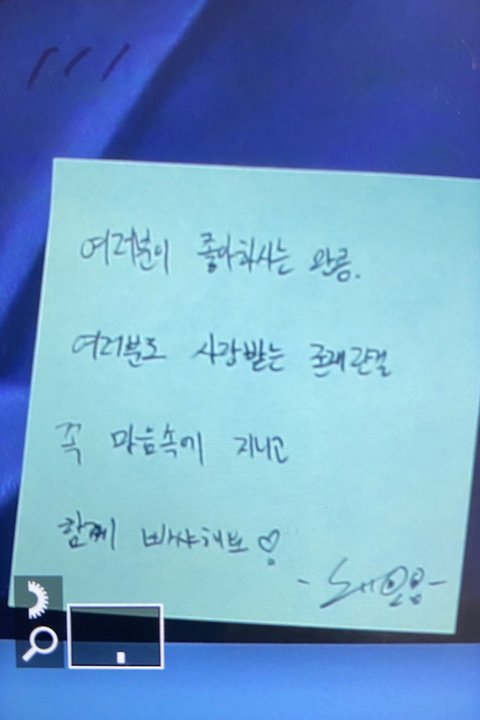 여러분이 좋아하시는 만큼.
여러분도 사랑받는 존재란걸
꼭 마음속에 지니고
함께 빠샤해보♡